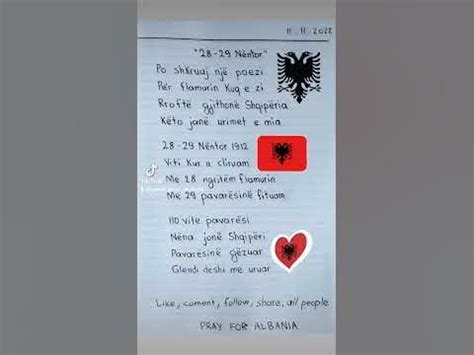 11.11.2022
"28-29 Nëntor"
Po shkruaj një poezi
Për flamurin Kuq e zi
Rroftë gjithonë Shqipëria
Këto janë urimet e mia
28-29 Nëntor 1912
Viti Kur u cliruam
Me 28 ngritëm flamurin
Me 29 pavarësinë fituam
110 vite pavarësi
Nëna jonë Shqipëri
Pavaresinë gëzuar
Glendi deshi me uruar
Like, coment, follow, share, all people
PRAY FOR ALBANIA